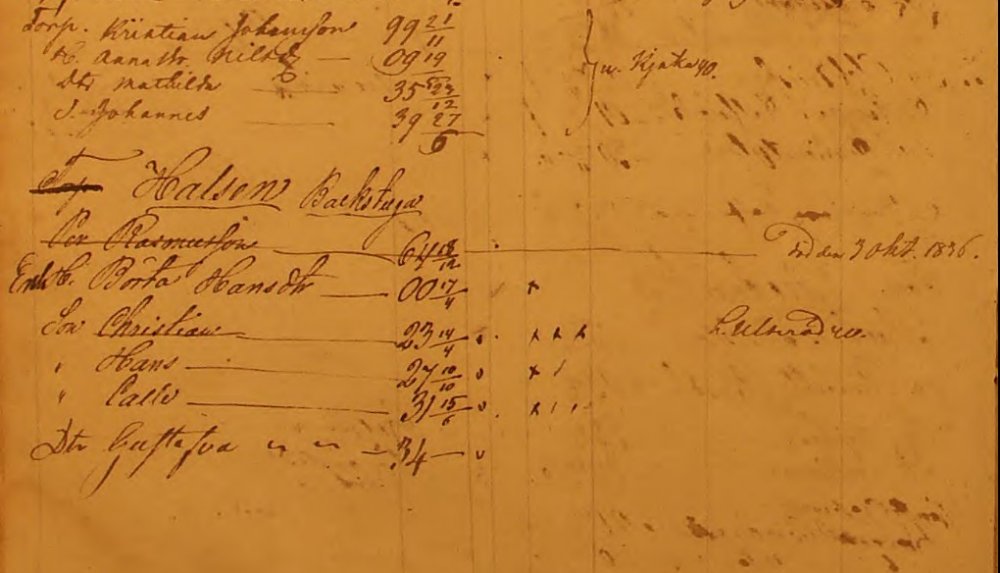 Torp. Kristian Johansson 99 21/11
H. Anna Nilsd — 09 19
Dtr Mathilda 35 23/12
S. Johannes 39 27/6
u. Kjaka 40.
Torp Halsen Backstuga
Per Rasmusson 64 18/12 Död den 3 okt. 1836.
Enk H. Börta Hansdtr 00 17/4 x
Son Christian 23 14/4 x x x
" Hans 27 10/10 x
" Calle 31 15/6 x
Dtr Gustafva " " 34